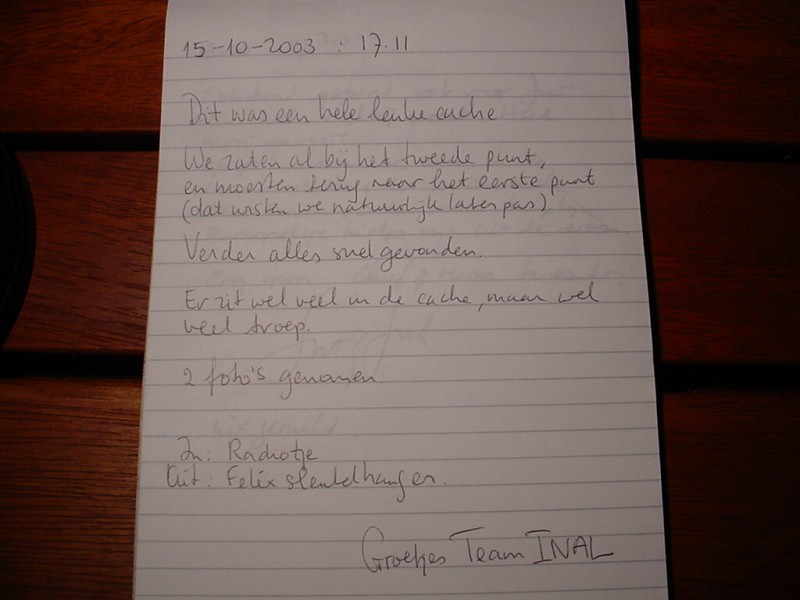 15-10-2003 : 17.11
Dit was een hele leuke cache
We zaten al bij het tweede punt,
en moesten terug naar het eerste punt
(dat wisten we natuurlijk later pas)
Verder alles snel gevonden.
Er zit wel veel in de cache, maar wel
veel troep.
2 foto's genomen
In: Radiotje
Uit: Felix sleutelhanger.
Groetjes Team INAL